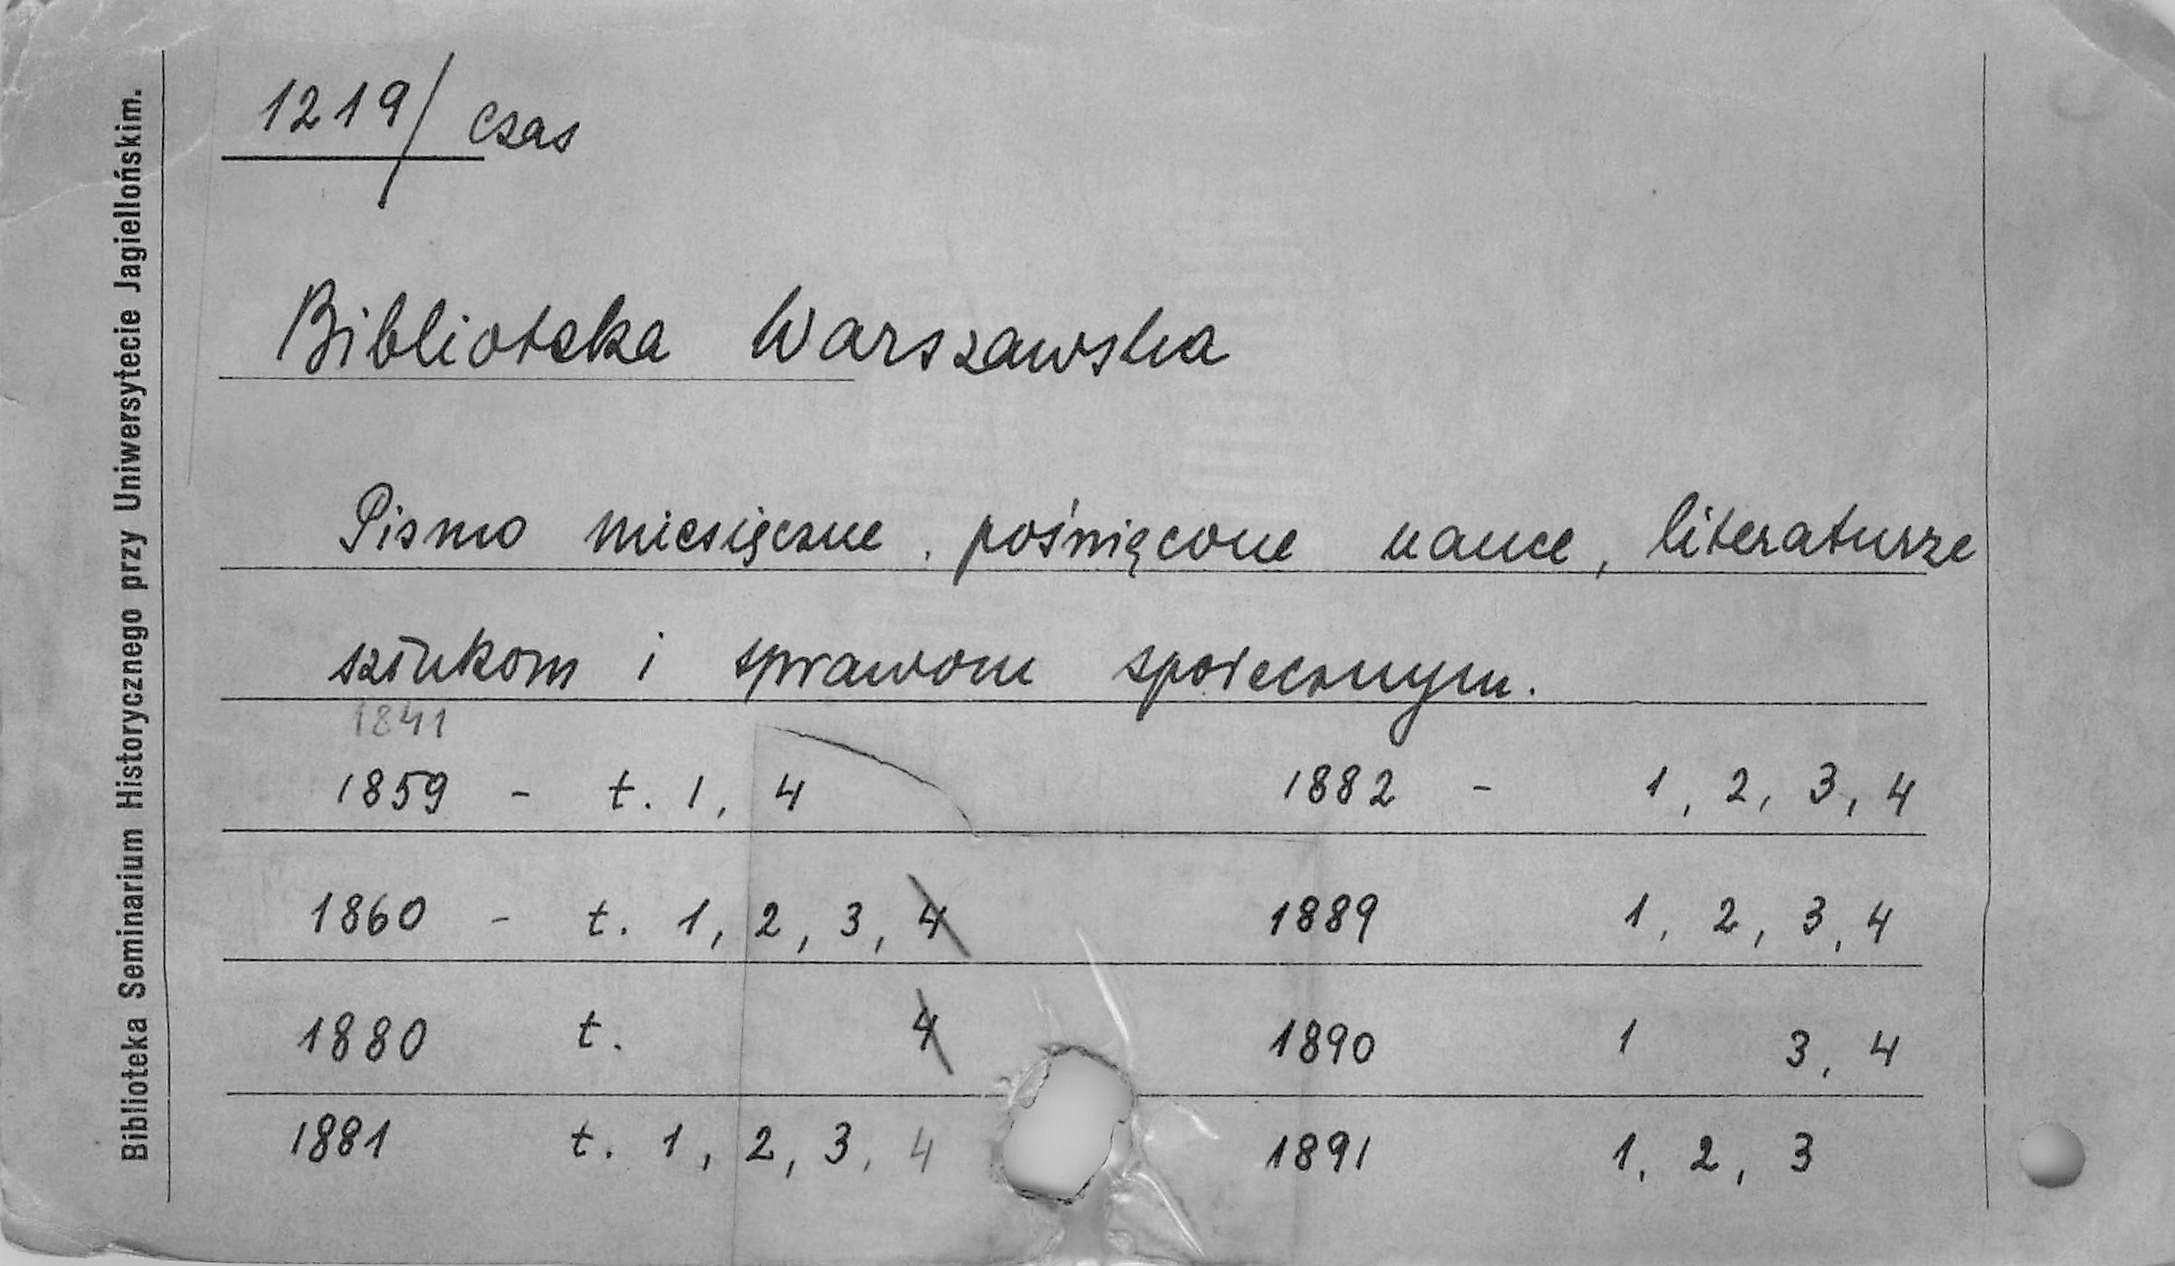 Biblioteka Seminarium Historycznego przy Uniwersytecie Jagiellońskim.
1219/ czas
Biblioteka Warszawska
Pismo miesięczne, poświęcone nauce, literaturze
sztukom i sprawom społecznym.
1841
1859 - t. 1, 4
1860 - t. 1, 2, 3, 4
1880 t. 4
1881 t. 1, 2, 3, 4
1882 - 1, 2, 3, 4
1889 1, 2, 3, 4
1890 1 3, 4
1891 1, 2, 3